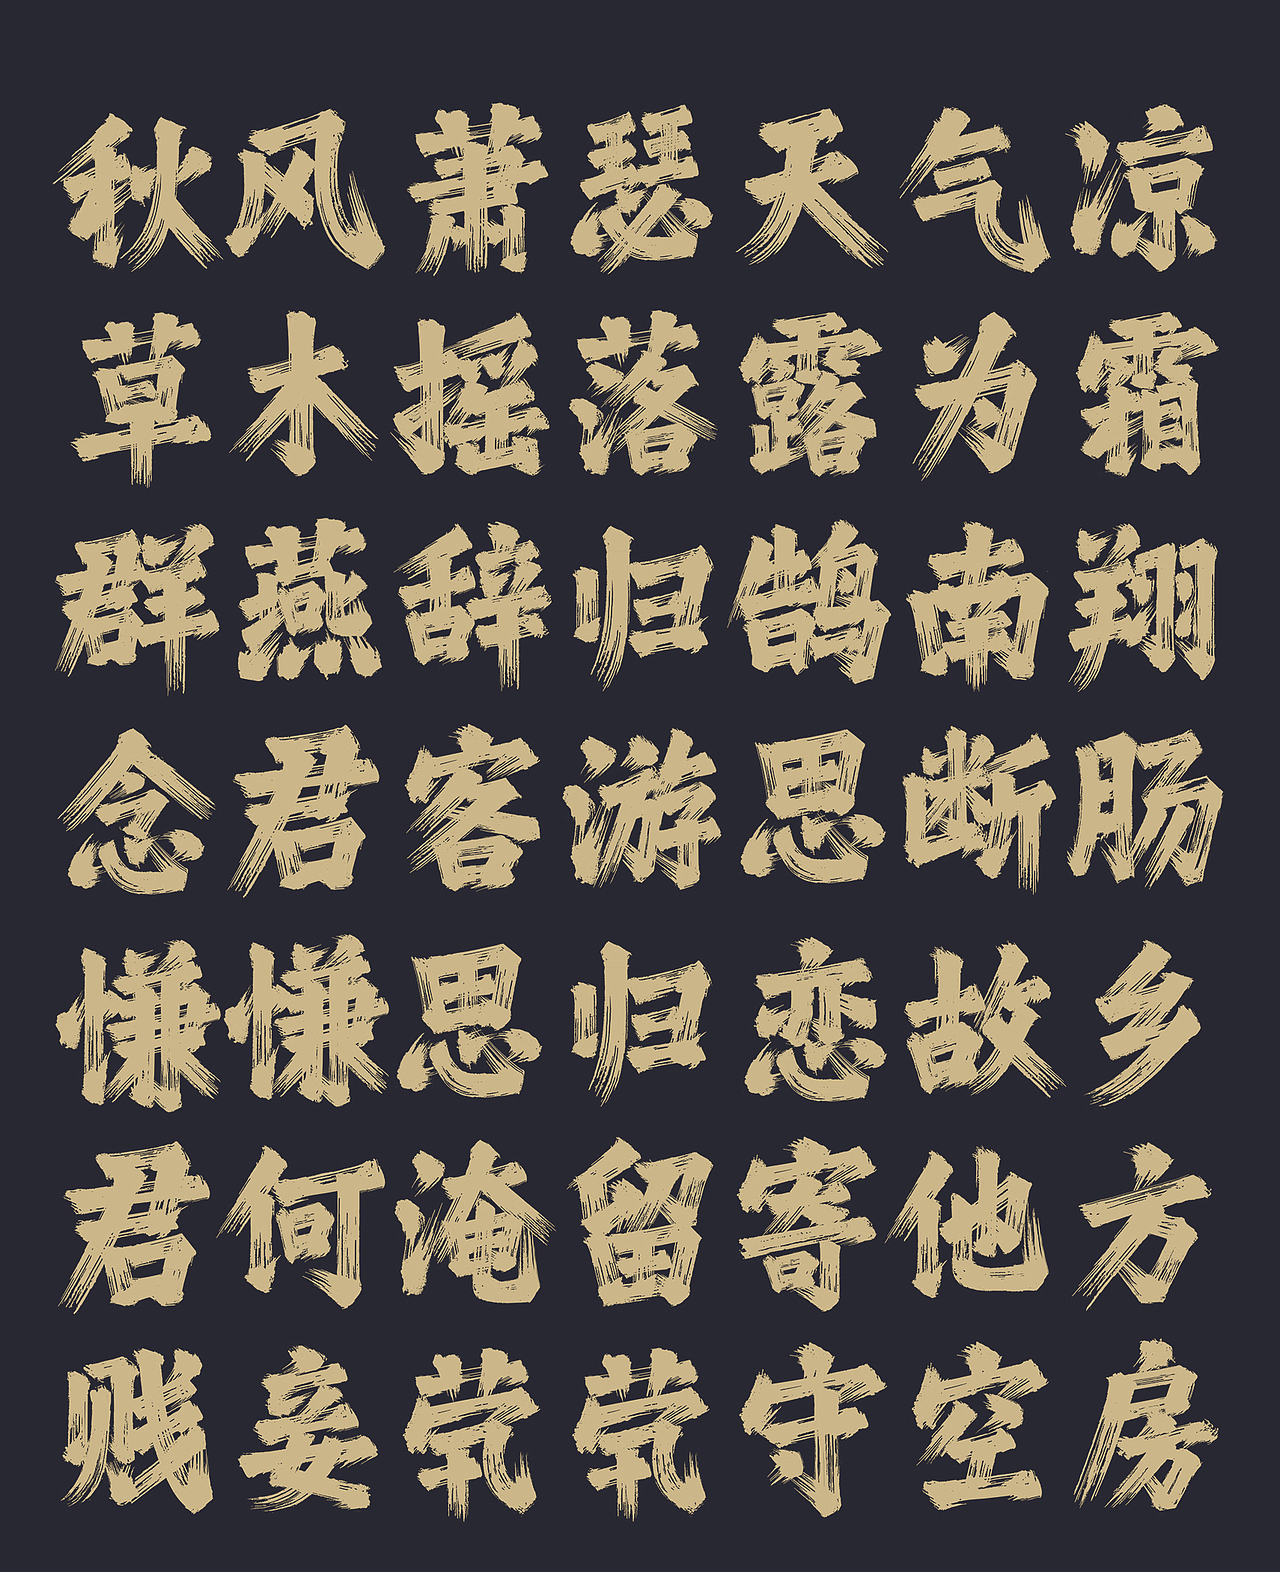 秋风萧瑟天气凉
草木摇落露为霜
群燕辞归鹄南翔
念君客游思断肠
慊慊思归恋故乡
君何淹留寄他方
贱妾茕茕守空房